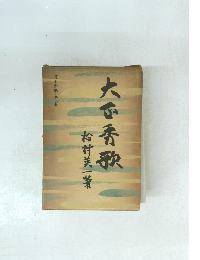 大正秀歌
松村英一著